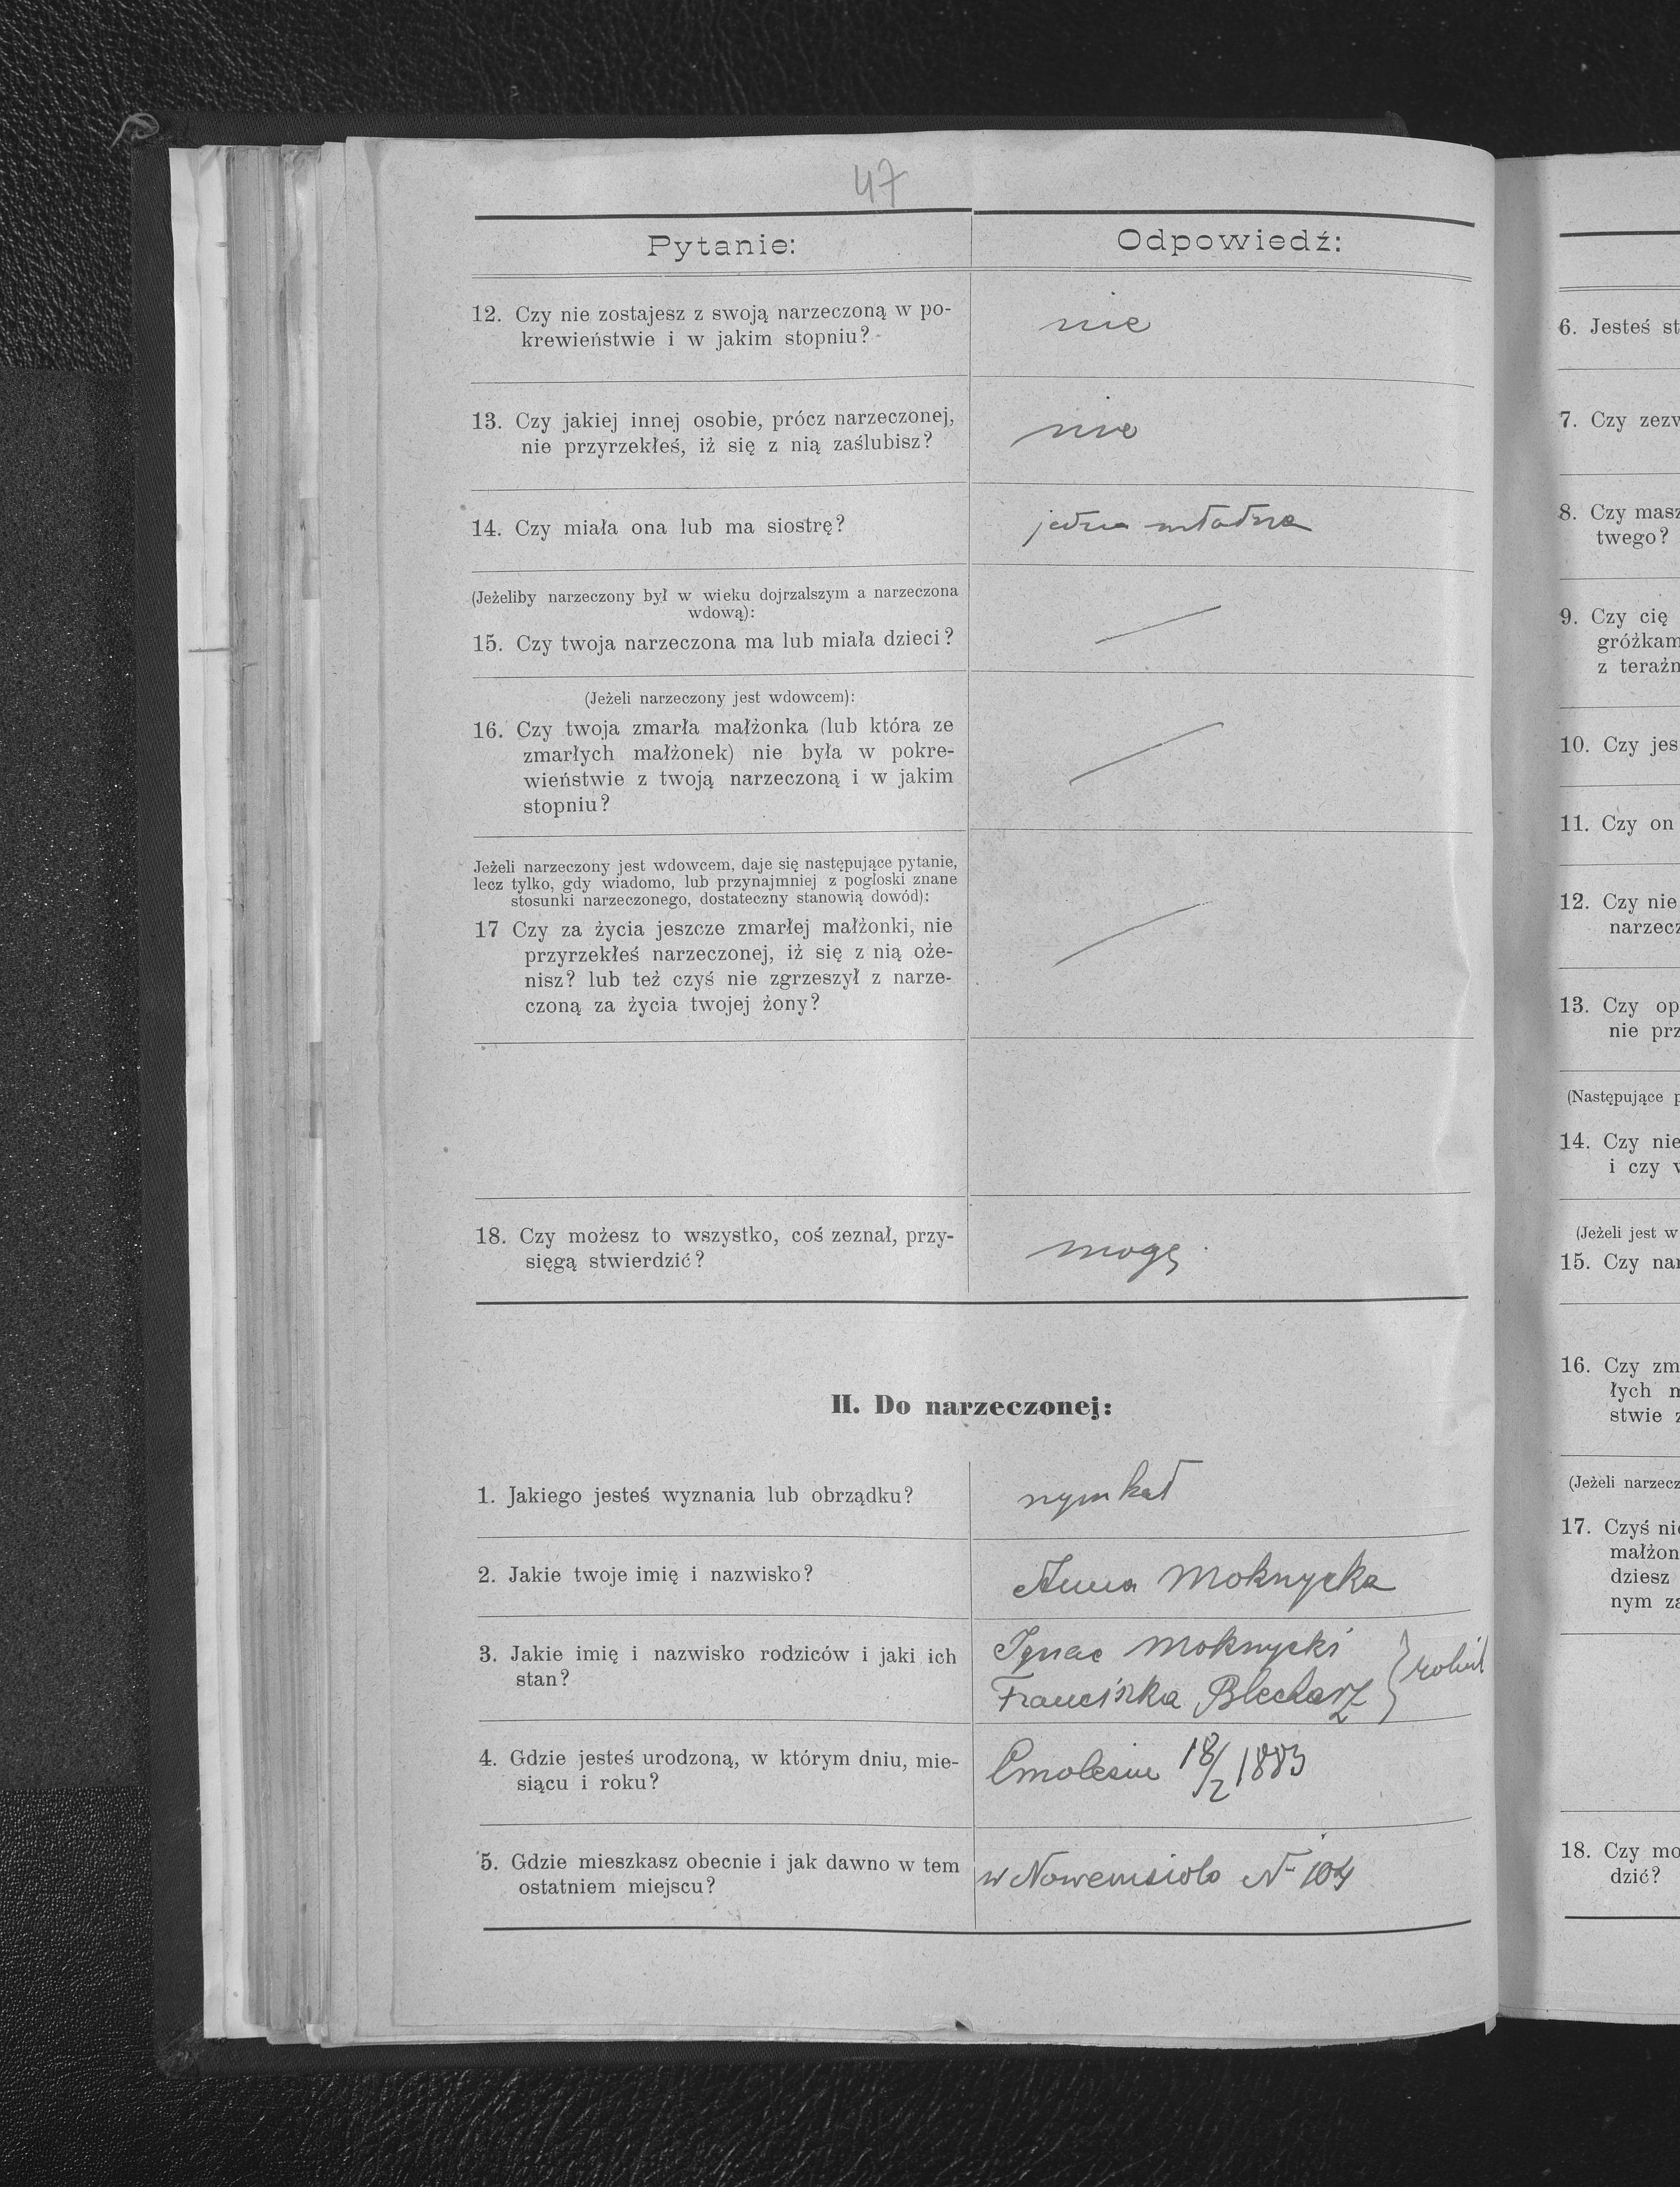 47
Pytanie:
Odpowiedź:
12. Czy nie zostajesz z swoją narzeczoną w po-
krewieństwie i w jakim stopniu?
nie
13. Czy jakiej innej osobie, prócz narzeczonej,
nie przyrzekłeś, iż się z nią zaślubisz?
nie
14. Czy miała ona lub ma siostrę?
jedna młodsza
(Jeżeliby narzeczony był w wieku dojrzalszym a narzeczona
wdową):
15. Czy twoja narzeczona ma lub miała dzieci?
(Jeżeli narzeczony jest wdowcem):
16. Czy twoja zmarła małżonka (lub która ze
zmarłych małżonek) nie była w pokre-
wieństwie z twoją narzeczoną i w jakim
stopniu?
Jeżeli narzeczony jest wdowcem, daje się następujące pytanie,
lecz tylko, gdy wiadomo, lub przynajmniej z pogłoski znane
stosunki narzeczonego, dostateczny stanowią dowód):
17 Czy za życia jeszcze zmarłej małżonki, nie
przyrzekłeś narzeczonej, iż się z nią oże-
nisz? lub też czyś nie zgrzeszył z narze-
czoną za życia twojej żony?
18. Czy możesz to wszystko, coś zeznał, przy-
sięgą stwierdzić?
mogę
II. Do narzeczonej:
1. Jakiego jesteś wyznania lub obrządku?
rzym kat
2. Jakie twoje imię i nazwisko?
Anna Mokrzycka
3. Jakie imię i nazwisko rodziców i jaki ich
stan?
Ignac Mokrzycki
Franciszka Blecharz
4. Gdzie jesteś urodzoną, w którym dniu, mie-
siącu i roku?
18/2 1883
5. Gdzie mieszkasz obecnie i jak dawno w tem
ostatniem miejscu?
w Nowemsiolo N 104
6. Jesteś st
7. Czy zezw
8. Czy masz
twego?
9. Czy cię
gróżkam
z teraźn
10. Czy jes
11. Czy on
12. Czy nie
narzecz
13. Czy op
nie prz
(Następujące p
14. Czy nie
i czy w
(Jeżeli jest w
15. Czy nar
16. Czy zm
łych m
stwie z
(Jeżeli narzecz
17. Czyś nie
małżon
dziesz
nym za
18. Czy mo
dzić?